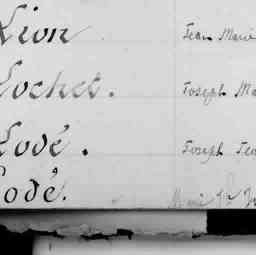 Lion Jean Marie
Lochet. Joseph Ma
Lodé. Joseph
Lodé. Marie